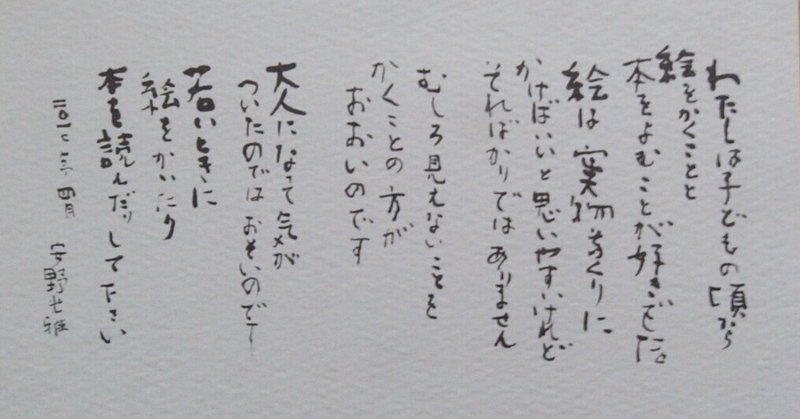 わたしは子どもの頃から
絵をかくことと
本をよむことが好きでした。
絵は実物そっくりに
かけばいいと思いやすいけれど
そればかりではありません
むしろ見えないことを
かくことの方が
おおいのです
大人になって気が
ついたのではおそいのです
若いときに
絵をかいたり
本を読んだりして下さい
四月 安野光雅